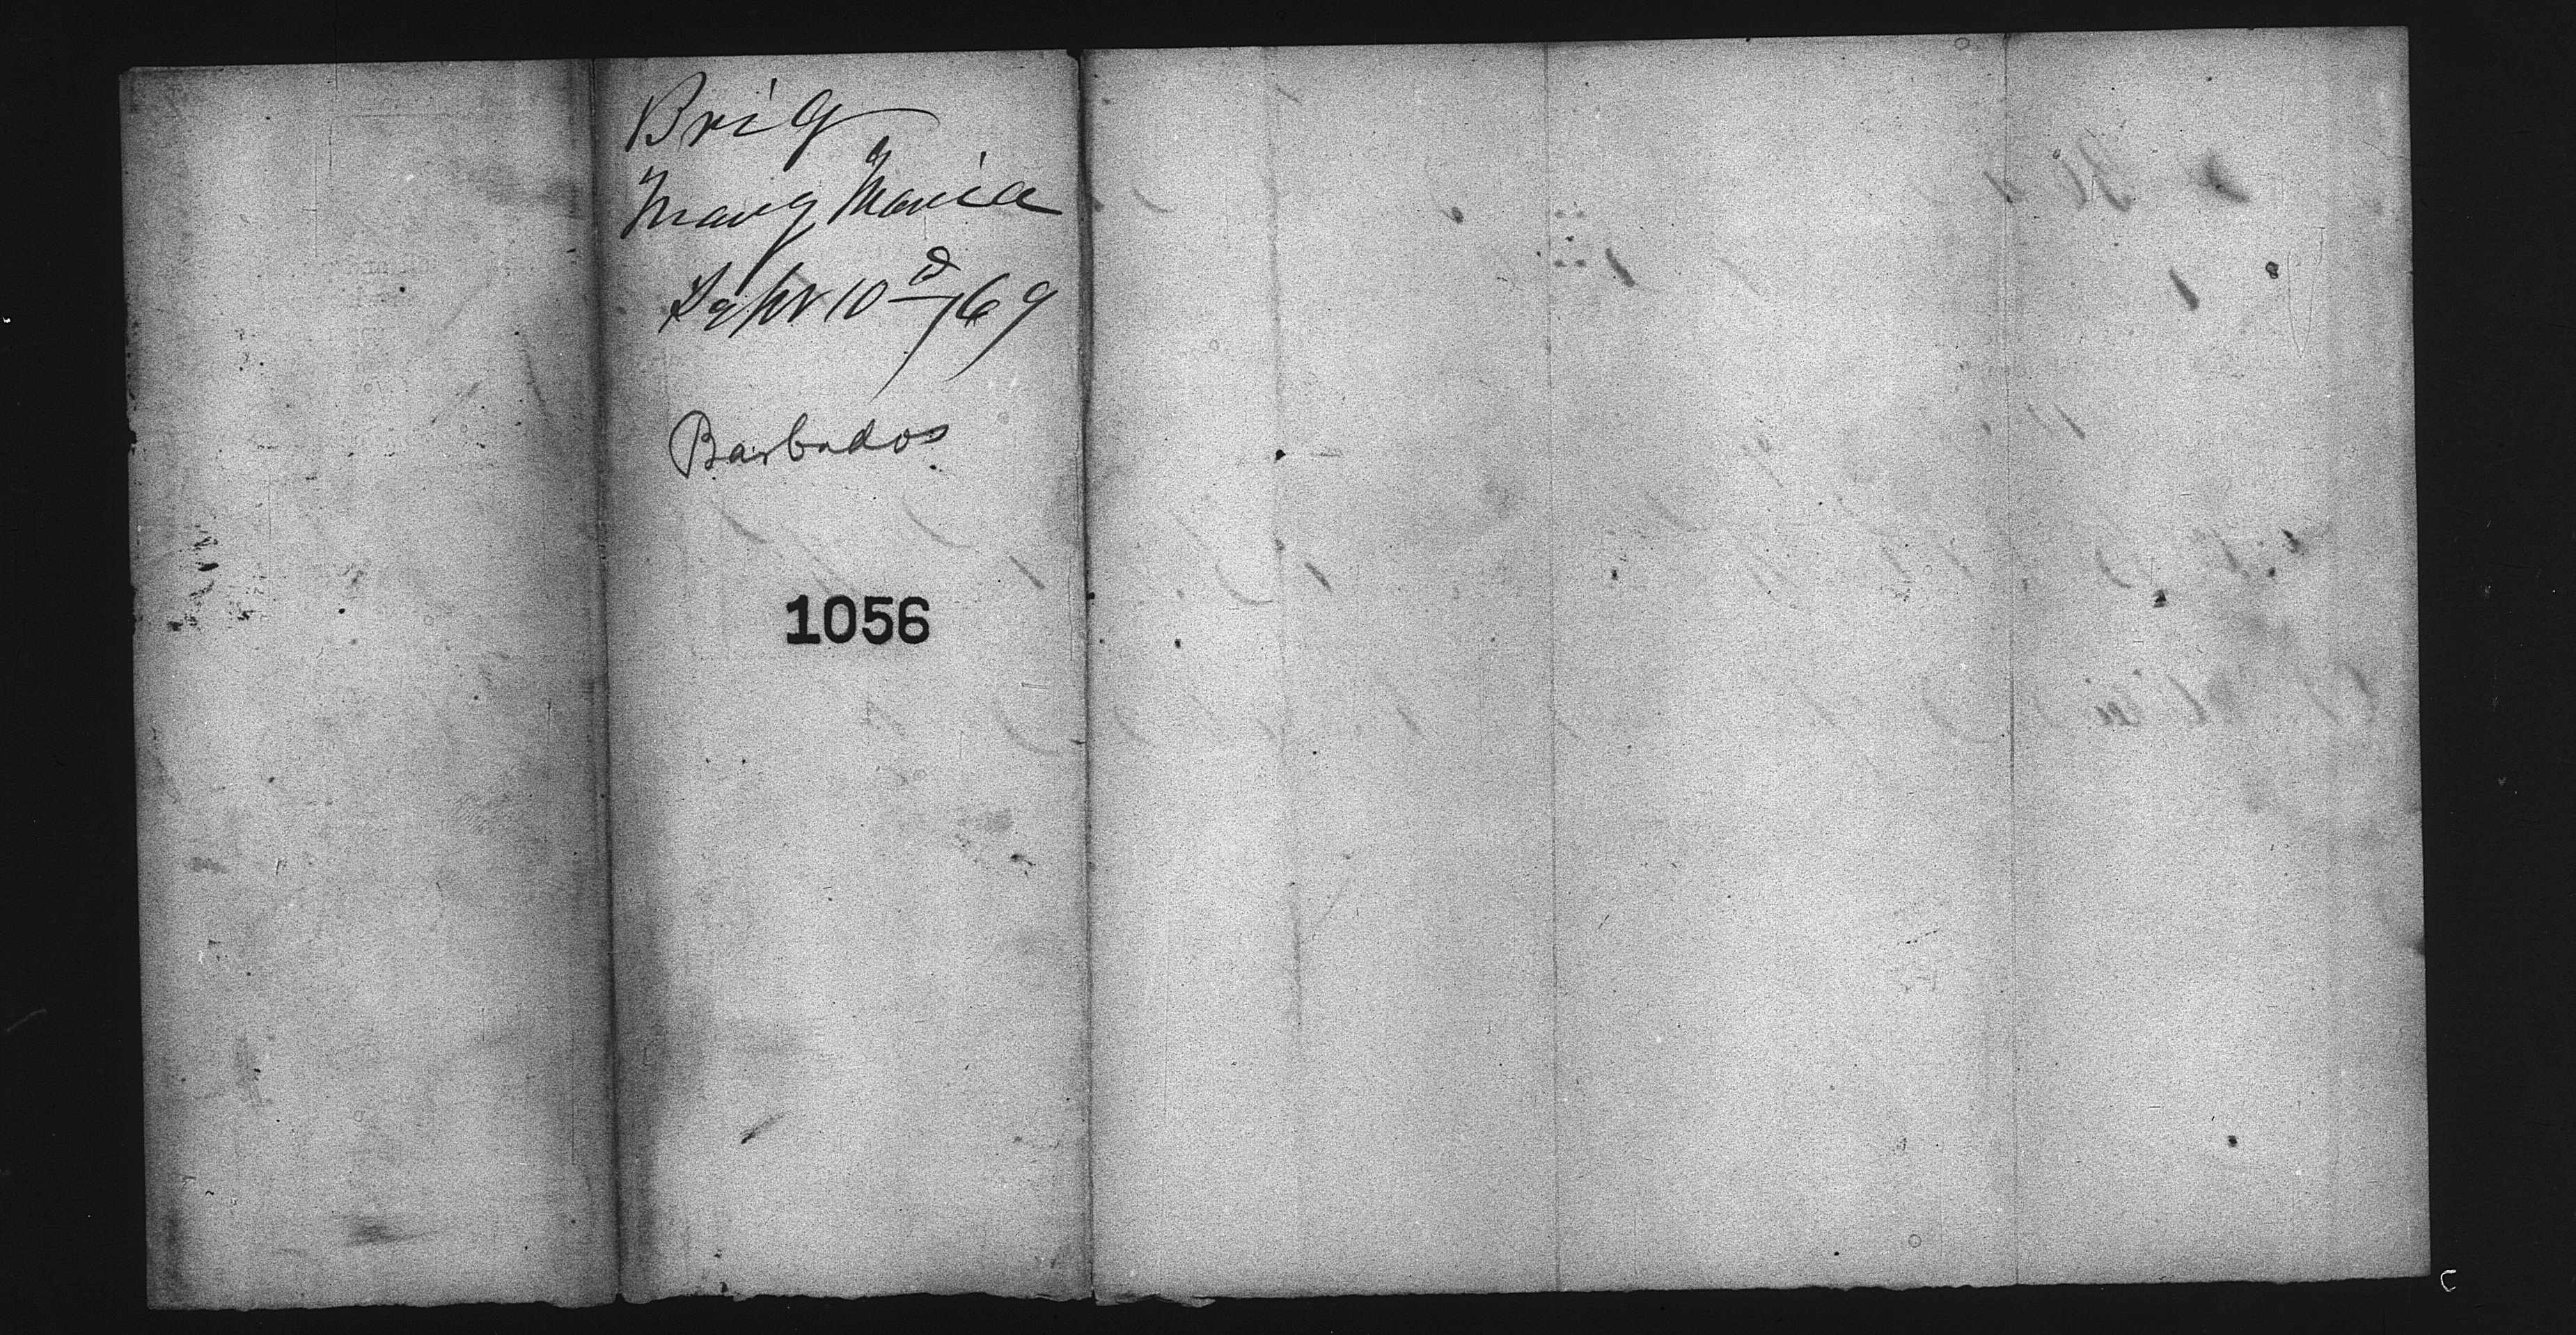 Brig
Mary Maria
Sept 10d/69
Barbados
1056